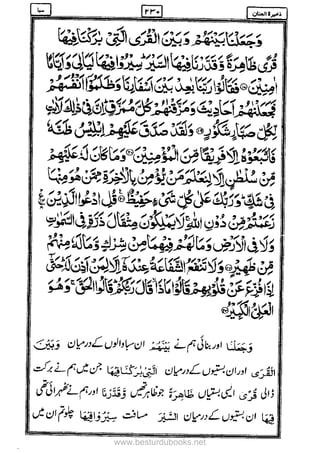 ذخیرۃ الجنان
۲۳۰
سبا
وَجَعَلْنَا بَيْنَهُمْ وَبَيْنَ الْقُرَى الَّتِي بٰرَكْنَا فِيْهَا
قُرًى ظَاهِرَةً وَّقَدَّرْنَا فِيْهَا السَّيْرَ ۭ سِيْرُوْا فِيْهَا لَيَالِيَ وَاَيَّامًا
اٰمِنِيْنَ ۞ فَقَالُوْا رَبَّنَا بٰعِدْ بَيْنَ اَسْفَارِنَا وَظَلَمُوْٓا اَنْفُسَهُمْ
فَجَعَلْنٰهُمْ اَحَادِيْثَ وَمَزَّقْنٰهُمْ كُلَّ مُمَزَّقٍ ۭ اِنَّ فِيْ ذٰلِكَ لَاٰيٰتٍ
لِّكُلِّ صَبَّارٍ شَكُوْرٍ ۞ وَلَقَدْ صَدَّقَ عَلَيْهِمْ اِبْلِيْسُ ظَنَّهٗ
فَاتَّبَعُوْهُ اِلَّا فَرِيْقًا مِّنَ الْمُؤْمِنِيْنَ ۞ وَمَا كَانَ لَهٗ عَلَيْهِمْ
مِّنْ سُلْطٰنٍ اِلَّا لِنَعْلَمَ مَنْ يُّؤْمِنُ بِالْاٰخِرَةِ مِمَّنْ هُوَ مِنْهَا
فِيْ شَكٍّ ۭ وَرَبُّكَ عَلٰي كُلِّ شَيْءٍ حَفِيْظٌ ۞ قُلِ ادْعُوا الَّذِيْنَ
زَعَمْتُمْ مِّنْ دُوْنِ اللّٰهِ ۚ لَا يَمْلِكُوْنَ مِثْقَالَ ذَرَّةٍ فِي السَّمٰوٰتِ
وَلَا فِي الْاَرْضِ وَمَا لَهُمْ فِيْهِمَا مِنْ شِرْكٍ وَّمَا لَهٗ مِنْهُمْ
مِّنْ ظَهِيْرٍ ۞ وَلَا تَنْفَعُ الشَّفَاعَةُ عِنْدَهٗٓ اِلَّا لِمَنْ اَذِنَ لَهٗ ۭ حَتّٰٓي
اِذَا فُزِّعَ عَنْ قُلُوْبِهِمْ قَالُوْا مَاذَا ۙ قَالَ رَبُّكُمْ ۭ قَالُوا الْحَقَّ ۚ وَهُوَ
الْعَلِيُّ الْكَبِيْرُ ۞
وَجَعَلْنَا اور بنائی ہم نے بَيْنَهُمْ ان سبا والوں کے درمیان وَبَيْنَ
الْقُرَى اور ان بستیوں کے درمیان الَّتِي بٰرَكْنَا فِيْهَا جن میں ہم نے برکت
ڈالی قُرًى ایسی بستیاں ظَاهِرَةً جو ظاہر تھیں وَّقَدَّرْنَا اور ہم نے ٹھہرائی تھی
فِيْهَا ان بستیوں کے درمیان السَّيْرَ مسافت سِيْرُوْا فِيْهَا چلو تم ان میں
www.besturdubooks.net